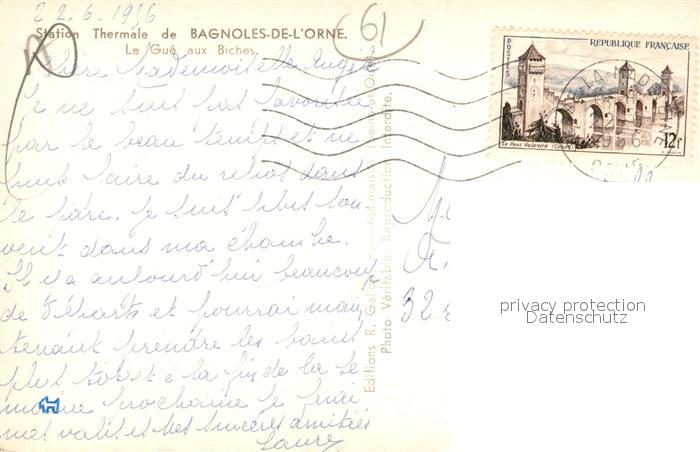 22.6.1956
Station Thermale de BAGNOLES-DE-L'ORNE.
Le Gué aux Biches.
61
Chère Mademoiselle Angèle
Je ne suis pas favorisée
par le beau temps et ne
puis faire du repos dans
le parc. Je suis plus sou
vent dans ma chambre.
Il y a aujourd'hui beaucoup
de départs et pourrai main
tenant prendre les bains
plus tôt et à la fin de la se
maine prochaine je ferai
mes valises et mes sincères amitiés
Laure
Editions R.
Photo Véritable. Reproduction Interdite.
REPUBLIQUE FRANÇAISE
POSTES
12f
Le Pont Valentré (Cahors)
32
privacy protection
Datenschutz